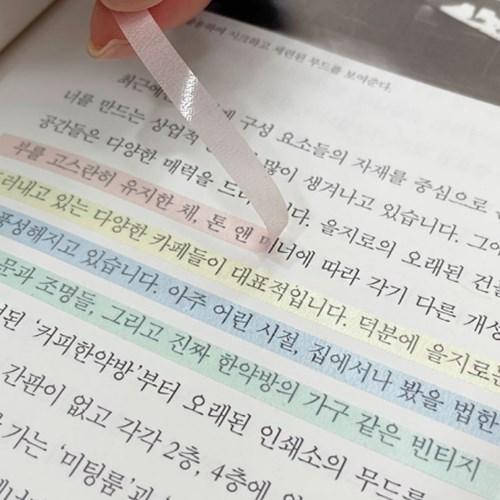 하여 시크하고 세련된 무드를 보여준다.
최근에 구성 요소들의 자재를 중심으로
너를 만드는 상업적 많이 생겨나고 있습니다. 그
공간들은 다양한 매력을 드 을지로의 오래된 건
부를 고스란히 유지한 채, 톤 앤 매너에 따라 각기 다른 개성
드러내고 있는 다양한 카페들이 대표적입니다. 덕분에 을지로
풍성해지고 있습니다. 아주 어린 시절, 집에서나 봤을 법한
문과 조명들, 그리고 진짜 한약방의 가구 같은 빈티지
된 '커피한약방'부터 오래된 인쇄소의 무드로
간판이 없고 각각 2층, 4층에
가는 '미팅룸'과